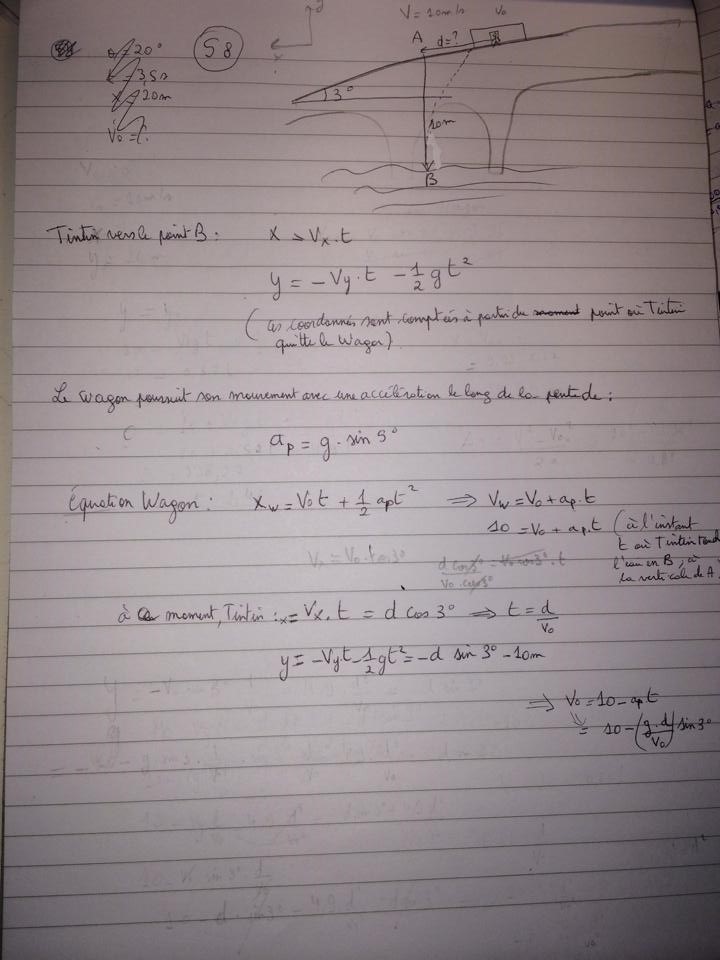 y
x
θ = 20°
t = 3,5s
x = 20m
V₀ = ?
58
V = 10m/s
V₀
A
d = ?
3°
10m
B
Tintin vers le point B : x → Vx . t
y = - Vy . t - 1/2 g t²
(Ces coordonnés sont comptés à partir du point où Tintin
quitte le Wagon)
Le Wagon poursuit son mouvement avec une accélération le long de la pente de :
ap = g . sin 5°
Équation Wagon : Xw = V₀t + 1/2 apt² ⟹ Vw = V₀ + ap.t
10 = V₀ + ap.t (à l'instant
t où Tintin
l'eau en B, à
la verticale de A.
Vx = V₀ . cos 3°
à ce moment, Tintin : x = Vx . t = d cos 3° ⟹ t = d/V₀
y = -Vyt - 1/2 gt² = -d sin 3° - 10m
⟹ V₀ = 10 - apt
= 10 - (g.d/V₀) sin 3°